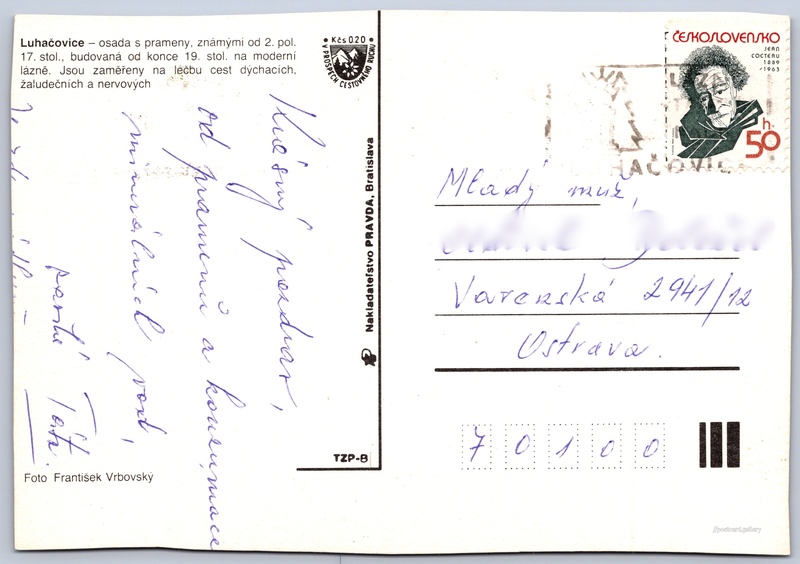 Luhačovice – osada s prameny, známými od 2. pol.
17. stol., budovaná od konce 19. stol. na moderní
lázně. Jsou zaměřeny na léčbu cest dýchacích,
žaludečních a nervových
Kčs 0.20
V PROSPĚCH CESTOVNÉHO RUCHU
Krásný pozdrav,
od pramenů a konsumace
minerálních vod,
Táta.
Foto František Vrbovský
Nakladateľstvo PRAVDA, Bratislava
TZP-B
ČESKOSLOVENSKO
JEAN
COCTEAU
1889
1963
50 h.
HAČOVIC
Mladý muž,
Varenská 2941/12
Ostrava.
70100